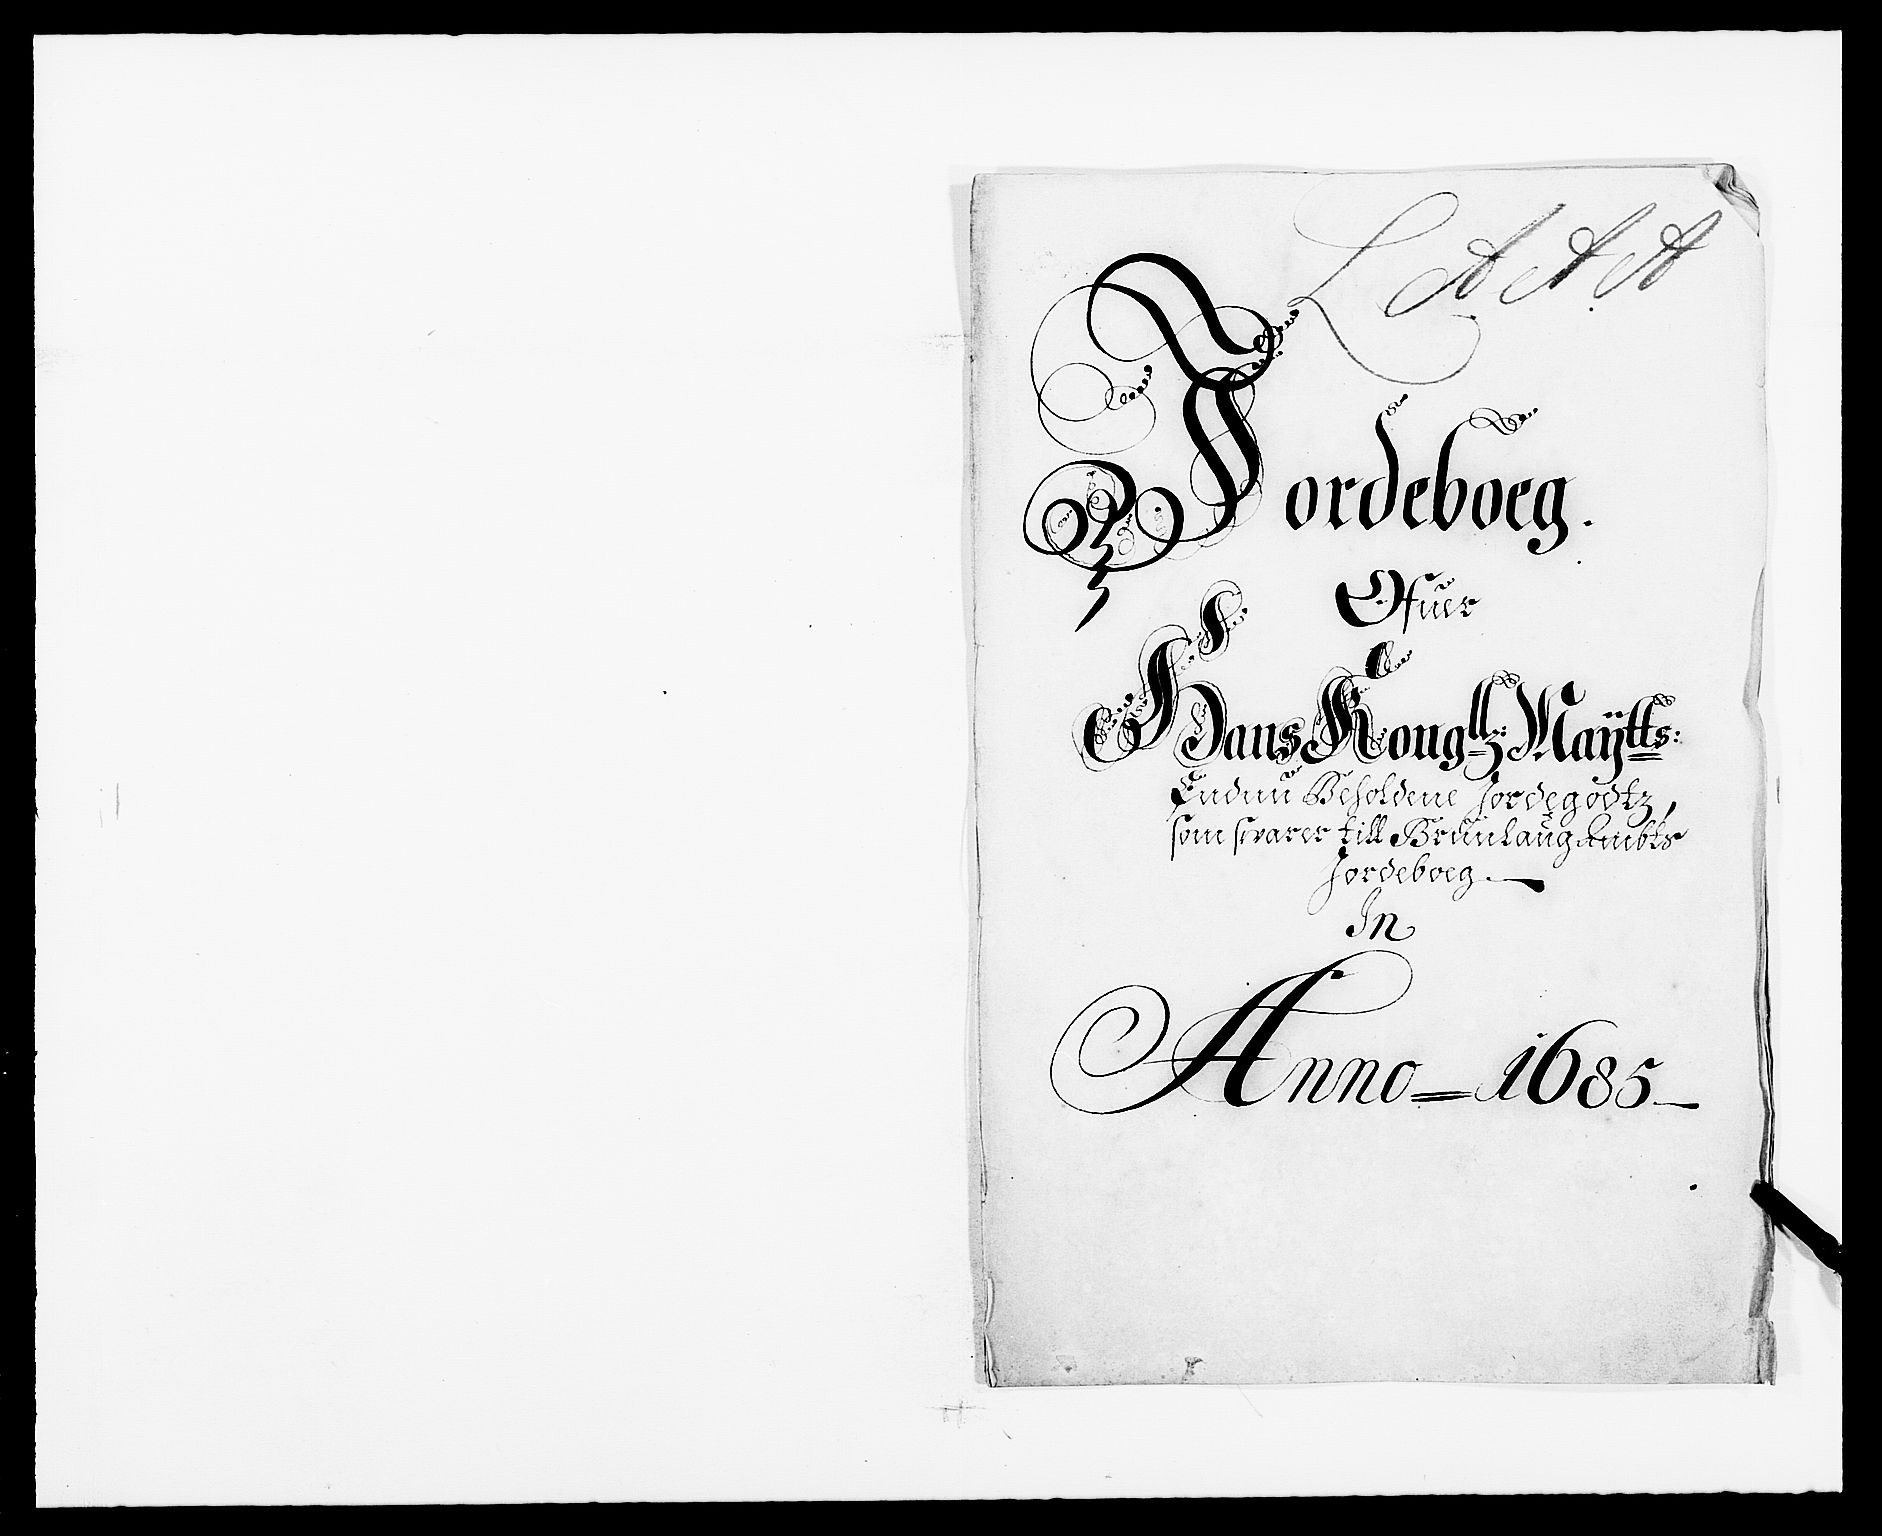 L A A A
Jordeboeg.
Ofuer
Hans Kongllz: Maÿtts:
Endnu Beholdene Jordegodtz,
som svarer till Brunlaug Ambts
Jordeboeg.
In
Anno = 1685